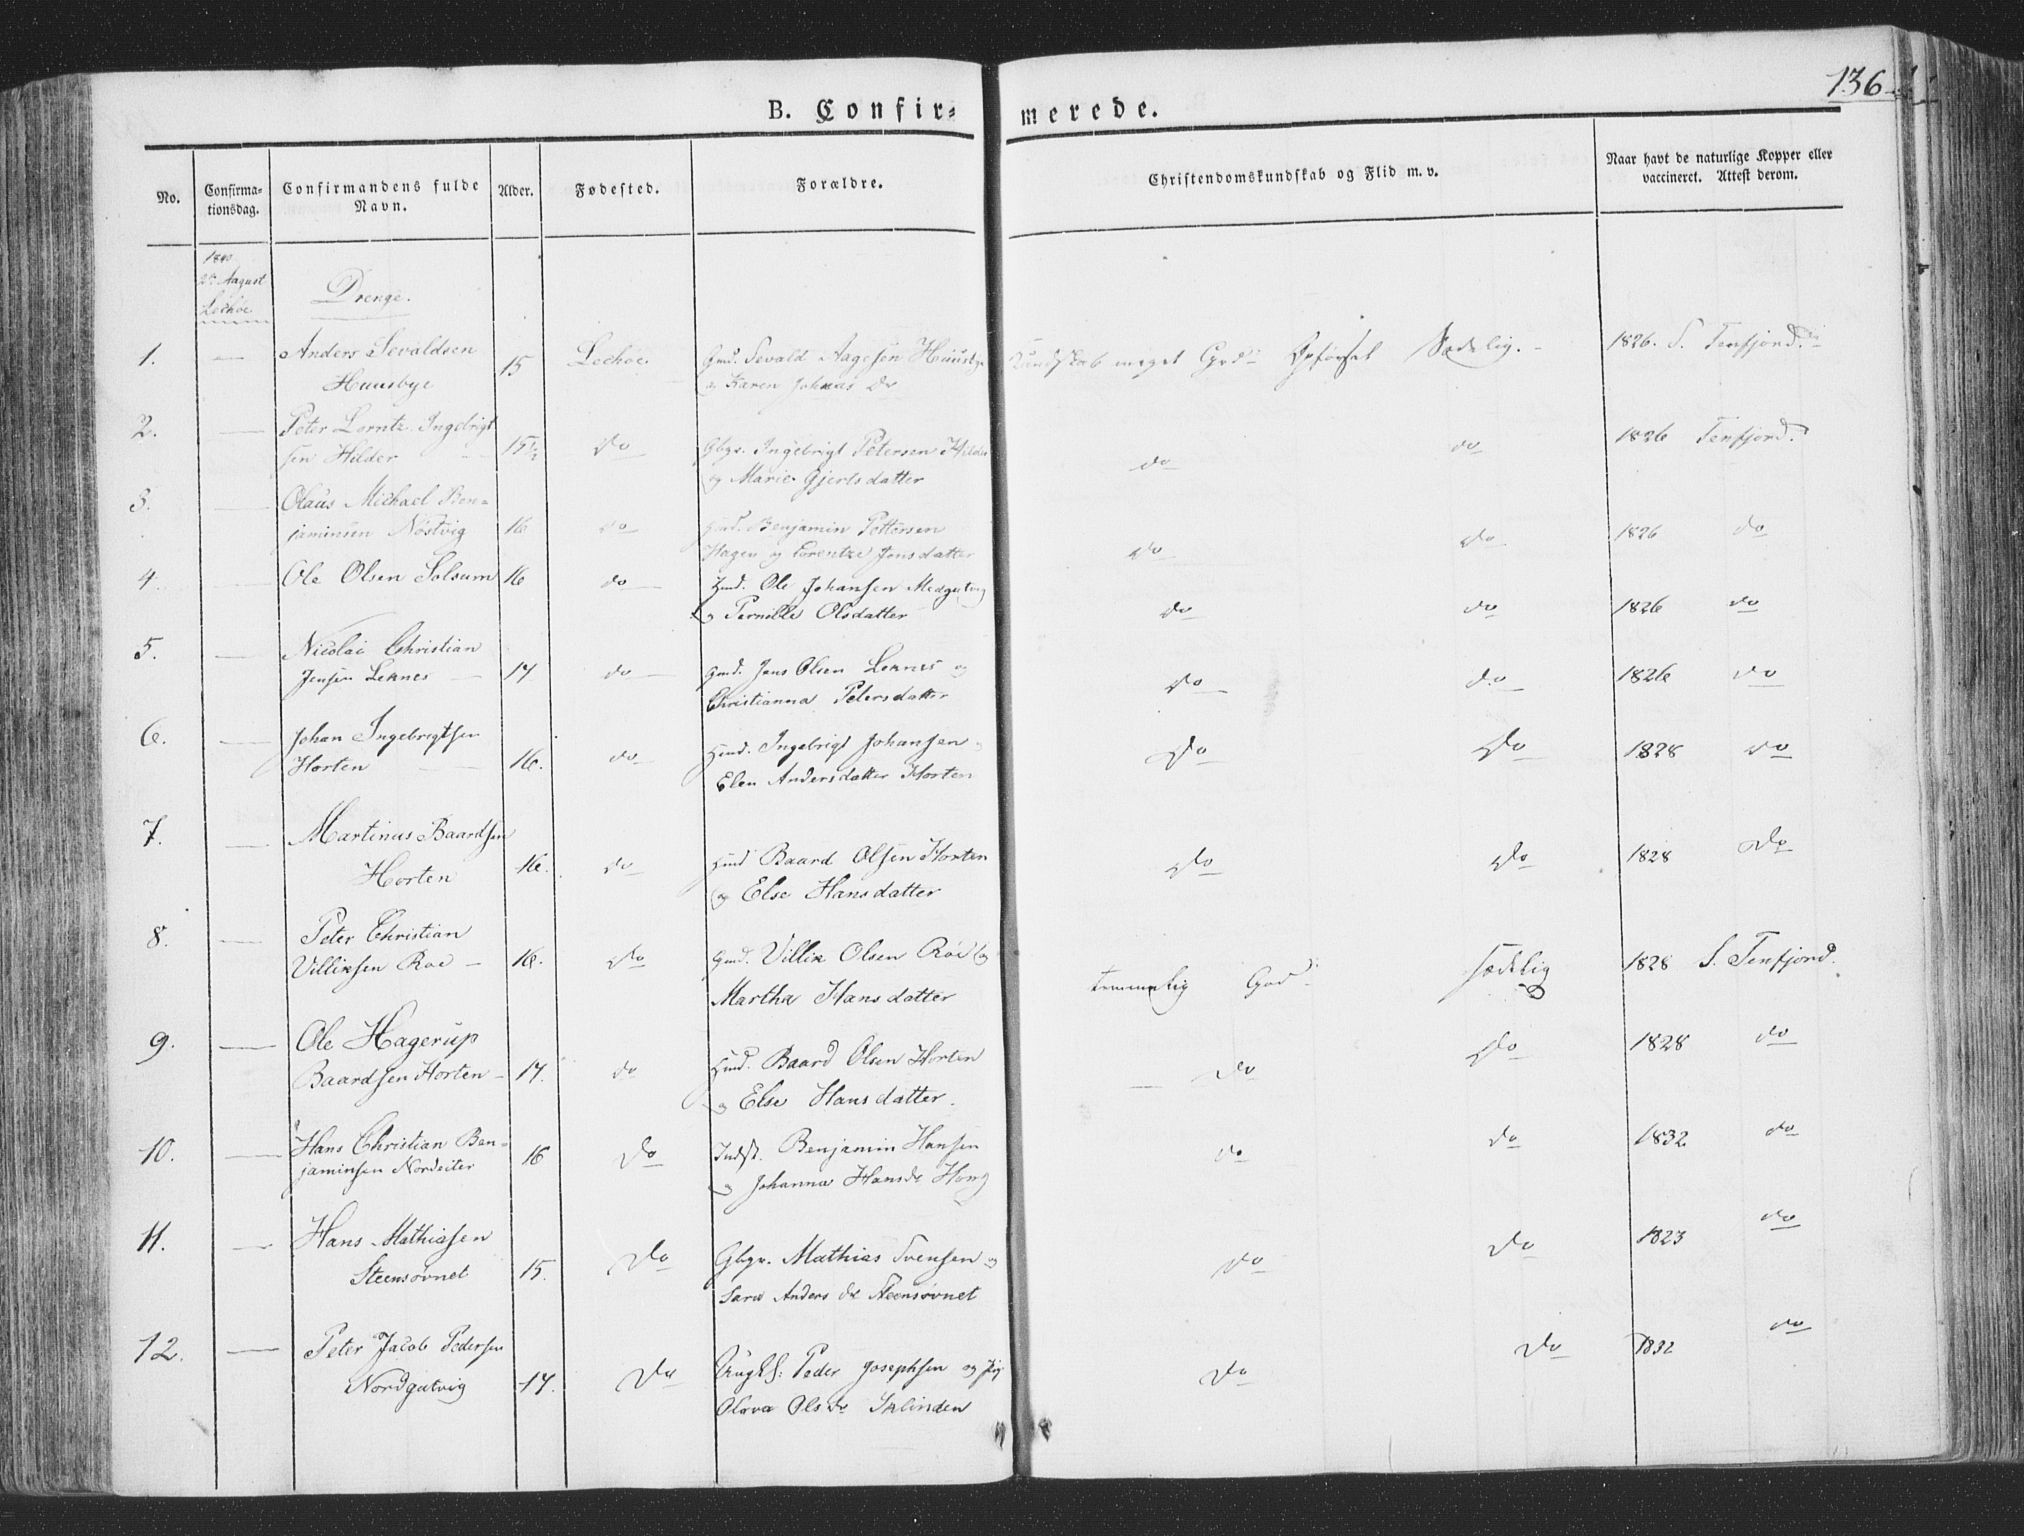 136
B. Confir= merede.
No. Confirma- Confirmandens fulde Alder. Fødested. Forældre. Christendomskundskab og Flid m. v. Naar havt de naturlige Kopper eller
tionsdag. Navn. vaccineret. Attest derom.
1840
August
Lechøe
Drenge.
1. — Anders Sevaldsen 15 Lechøe Gmd. Sevald Aagesen Huusbye Kundskab meget God Opførsel Sædelig. 1826. S. Tenfjord.
Huusbye og Karen Johnas Dr
2. — Peter Lorntz Ingebrigt 15½ do Gbgr. Ingebrigt Petersen Hilder do do 1826 Tenfjord.
sen Hilder og Marie Gjertsdatter
3. — Olaus Michael Ben= 16 do Huusmd. Benjamin Pettersen do do 1826 do
jaminsen Nøstvig Hagen og Lorentze Jonsdatter
4. — Ole Olsen Solsum 16 do Hmd. Ole Johansen do do 1826 do
og Pernille Olsdatter
5. — Nicolai Christian 17 do Gmd. Jens Olsen Leknes og do do 1826 do
Jensen Leknes Christianna Petersdatter
6. — Johan Ingebrigtsen 16. do Hmd. Ingebrigt Johansen Do Do 1828 do
Horten Elen Andersdatter Horten
7. — Martinus Baardsen 16. do Hmd Baard Olsen Horten Do Do 1828 Do
Horten og Else Hansdatter
8. — Peter Christian 16. Do Gmd. Villik Olsen Röe og temmelig God sædelig 1828 S. Tenfjord.
Villiksen Roe — Martha Hansdatter
9. — Ole Hagerup 17. do Hmd. Baard Olsen Horten Do Do 1828 do
Baardsen Horten — og Else Hansdatter.
10. — Hans Christian Ben= 16 Do Indst. Benjamin Hansen do do 1832 do
jaminsen Nordeiter og Johanna Hansdr
11. — Hans Mathiasen 15. Do Gbgr. Mathias Svensen og do Do 1823 do
Steensøvnet Sara Anders dr Steensøvnet
12. — Peter Jacob Pedersen 17. Do Ungk: Peder Josephsen og Pig Do Do 1832 do
Nordgutvig Olava Olsdr Sklinden